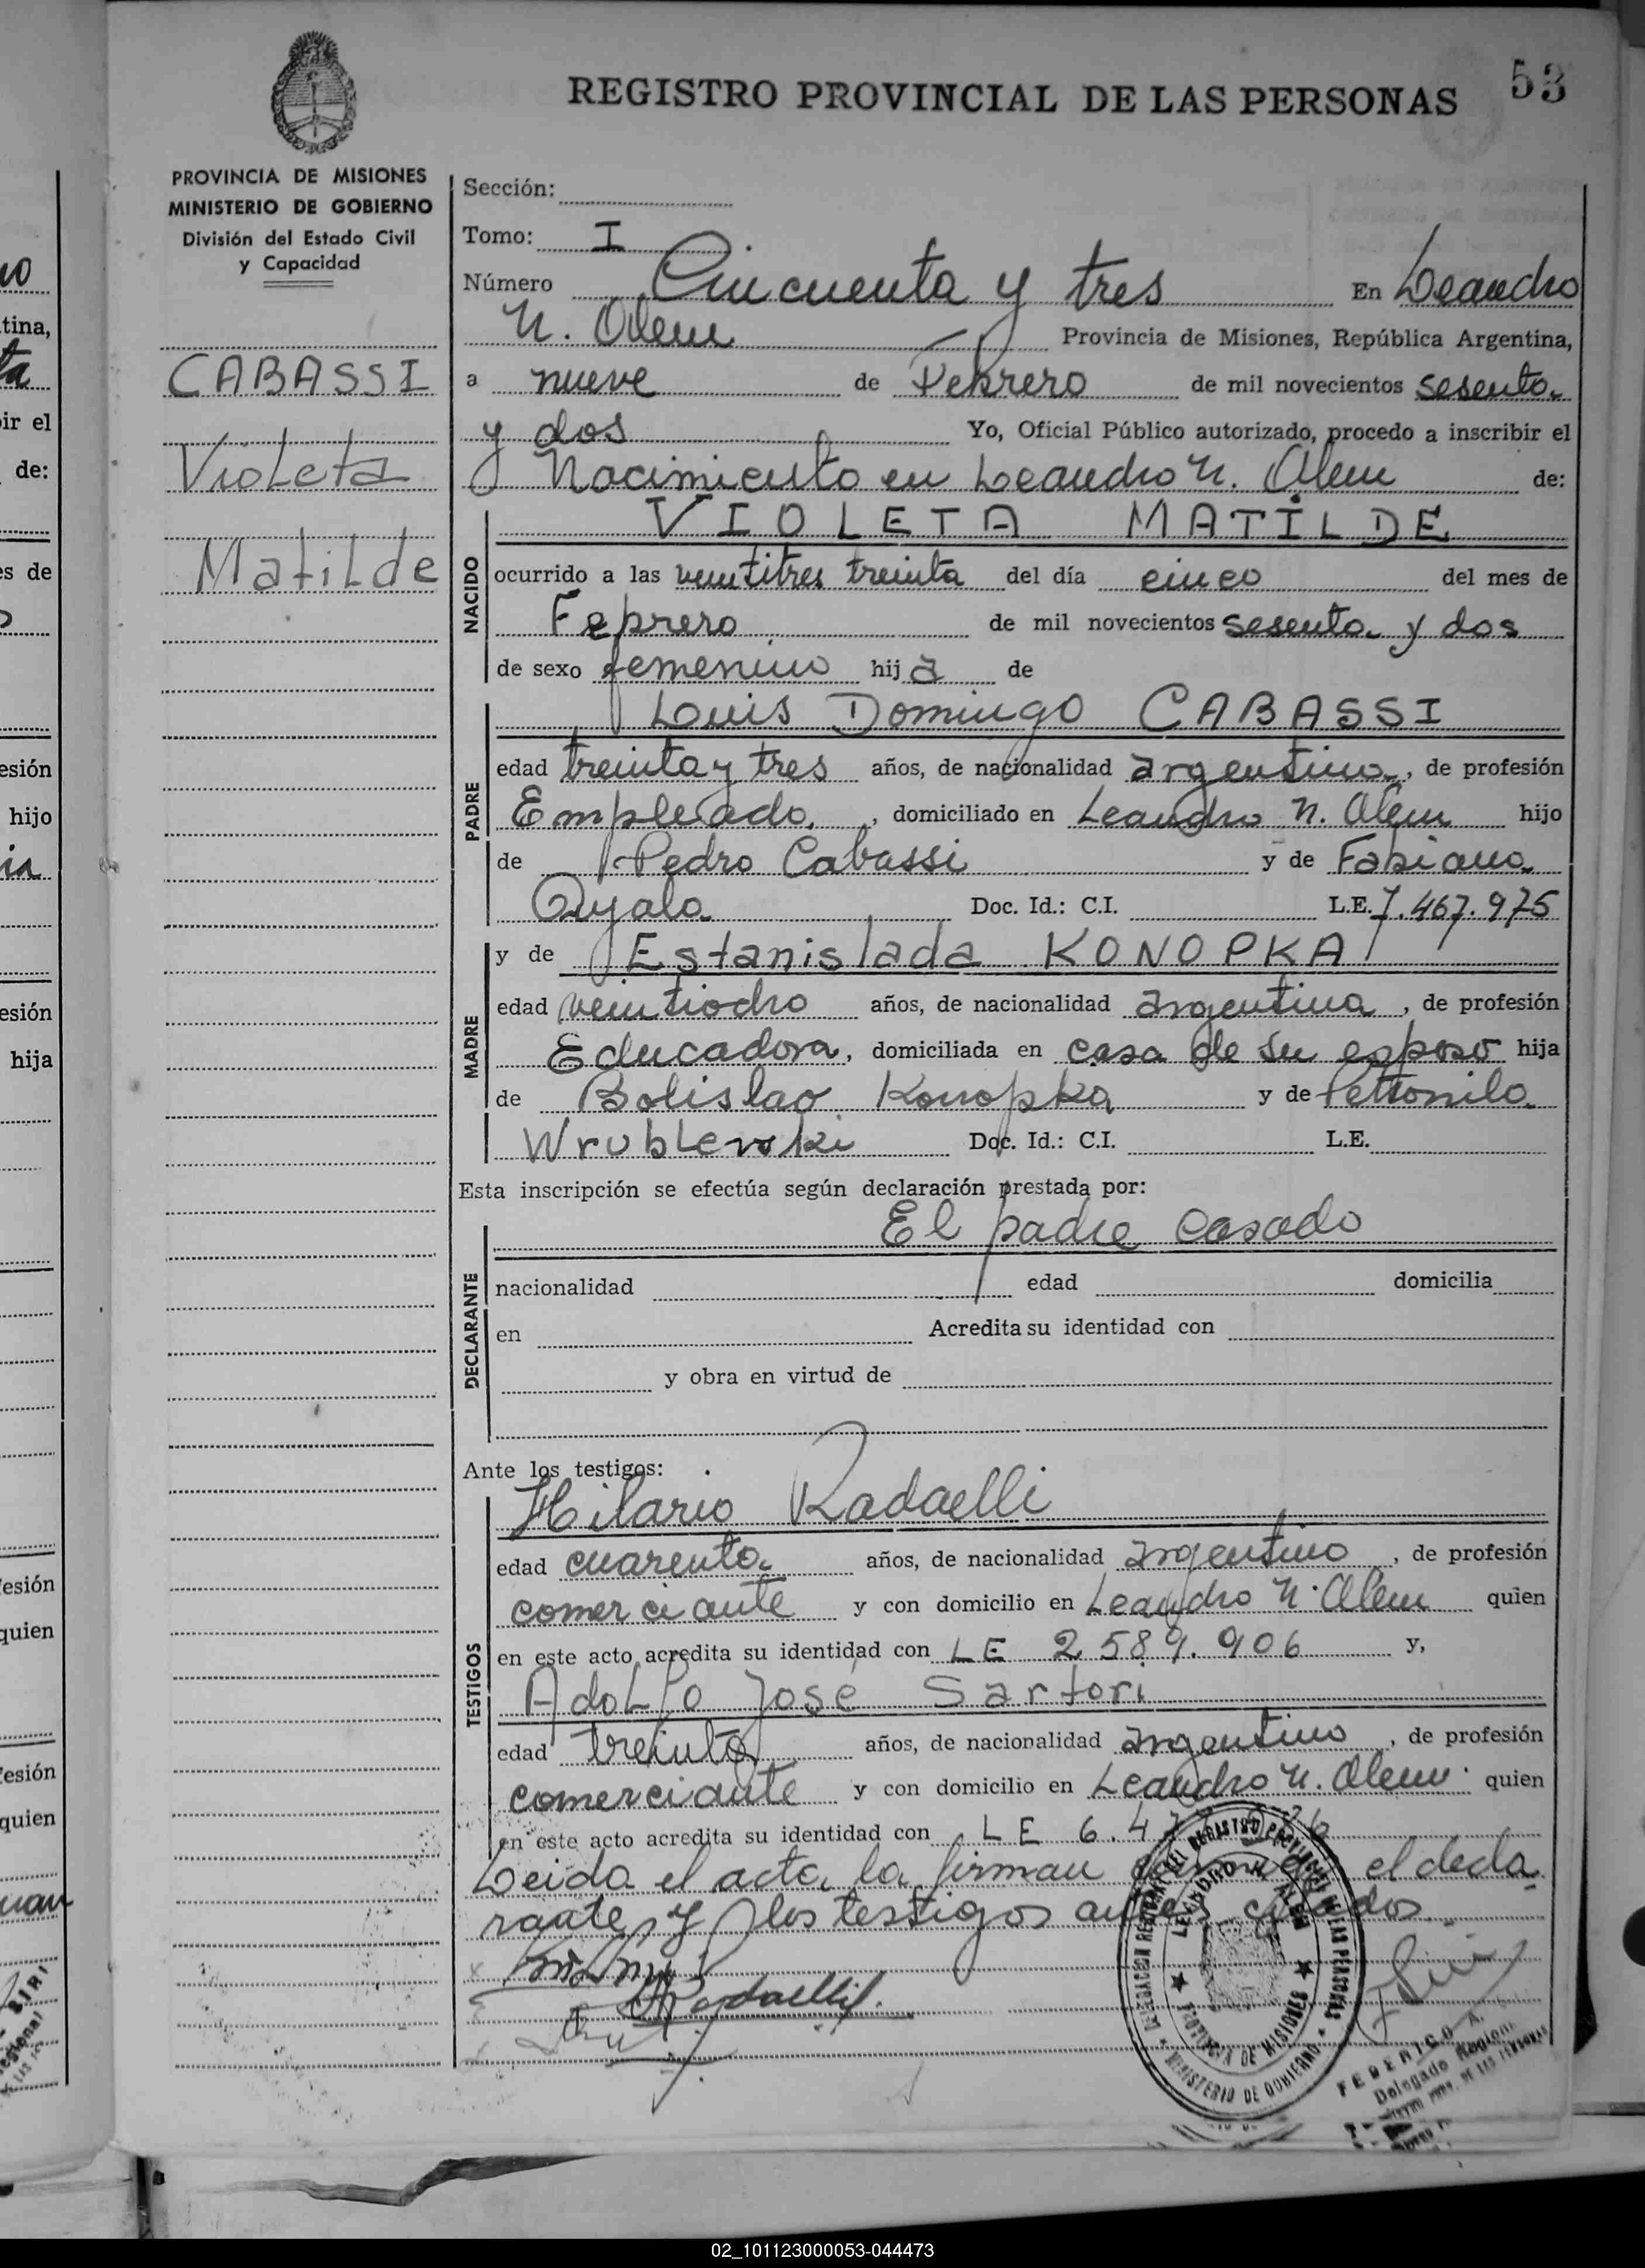 REGISTRO PROVINCIAL DE LAS PERSONAS 53
PROVINCIA DE MISIONES
MINISTERIO DE GOBIERNO
División del Estado Civil
y Capacidad
CABASSI
Violeta
Matilde
Sección:
Tomo: I
Número Cincuenta y tres En Leandro
N. Alem Provincia de Misiones, República Argentina,
a nueve de Febrero de mil novecientos sesenta
y dos Yo, Oficial Público autorizado, procedo a inscribir el
Nacimiento en Leandro N. Alem de:
NACIDO
VIOLETA MATILDE
ocurrido a las veintitres treinta del día cinco del mes de
Febrero de mil novecientos sesenta y dos
de sexo femenino hija de
PADRE
Luis Domingo CABASSI
edad treinta y tres años, de nacionalidad argentino, de profesión
Empleado, domiciliado en Leandro N. Alem hijo
de Pedro Cabassi y de Fabiana
Ayala Doc. Id.: C.I. L.E. 7.467.975
MADRE
y de Estanislada KONOPKA
edad veintiocho años, de nacionalidad argentina, de profesión
Educadora, domiciliada en casa de su esposo hija
de Bolislao Konopka y de Petronila
Wrublewski Doc. Id.: C.I. L.E.
Esta inscripción se efectúa según declaración prestada por:
DECLARANTE
El padre casado
nacionalidad edad domicilia
en Acredita su identidad con
y obra en virtud de
Ante los testigos:
TESTIGOS
Hilario Radaelli
edad cuarenta años, de nacionalidad argentino, de profesión
comerciante y con domicilio en Leandro N. Alem quien
en este acto acredita su identidad con LE 2.589.906 y,
Adolfo José Sartori
edad treinta años, de nacionalidad argentino, de profesión
comerciante y con domicilio en Leandro N. Alem quien
en este acto acredita su identidad con LE 6.47
Leida el acta, la firman el decla
rante, y los testigos antes citados
Radaelli
DELEGACION REGISTRO PROVINCIAL DE LAS PERSONAS
LEANDRO N. ALEM
PROVINCIA DE MISIONES
MINISTERIO DE GOBIERNO
FEDERICO A.
Delegado Regional
02_101123000053-044473